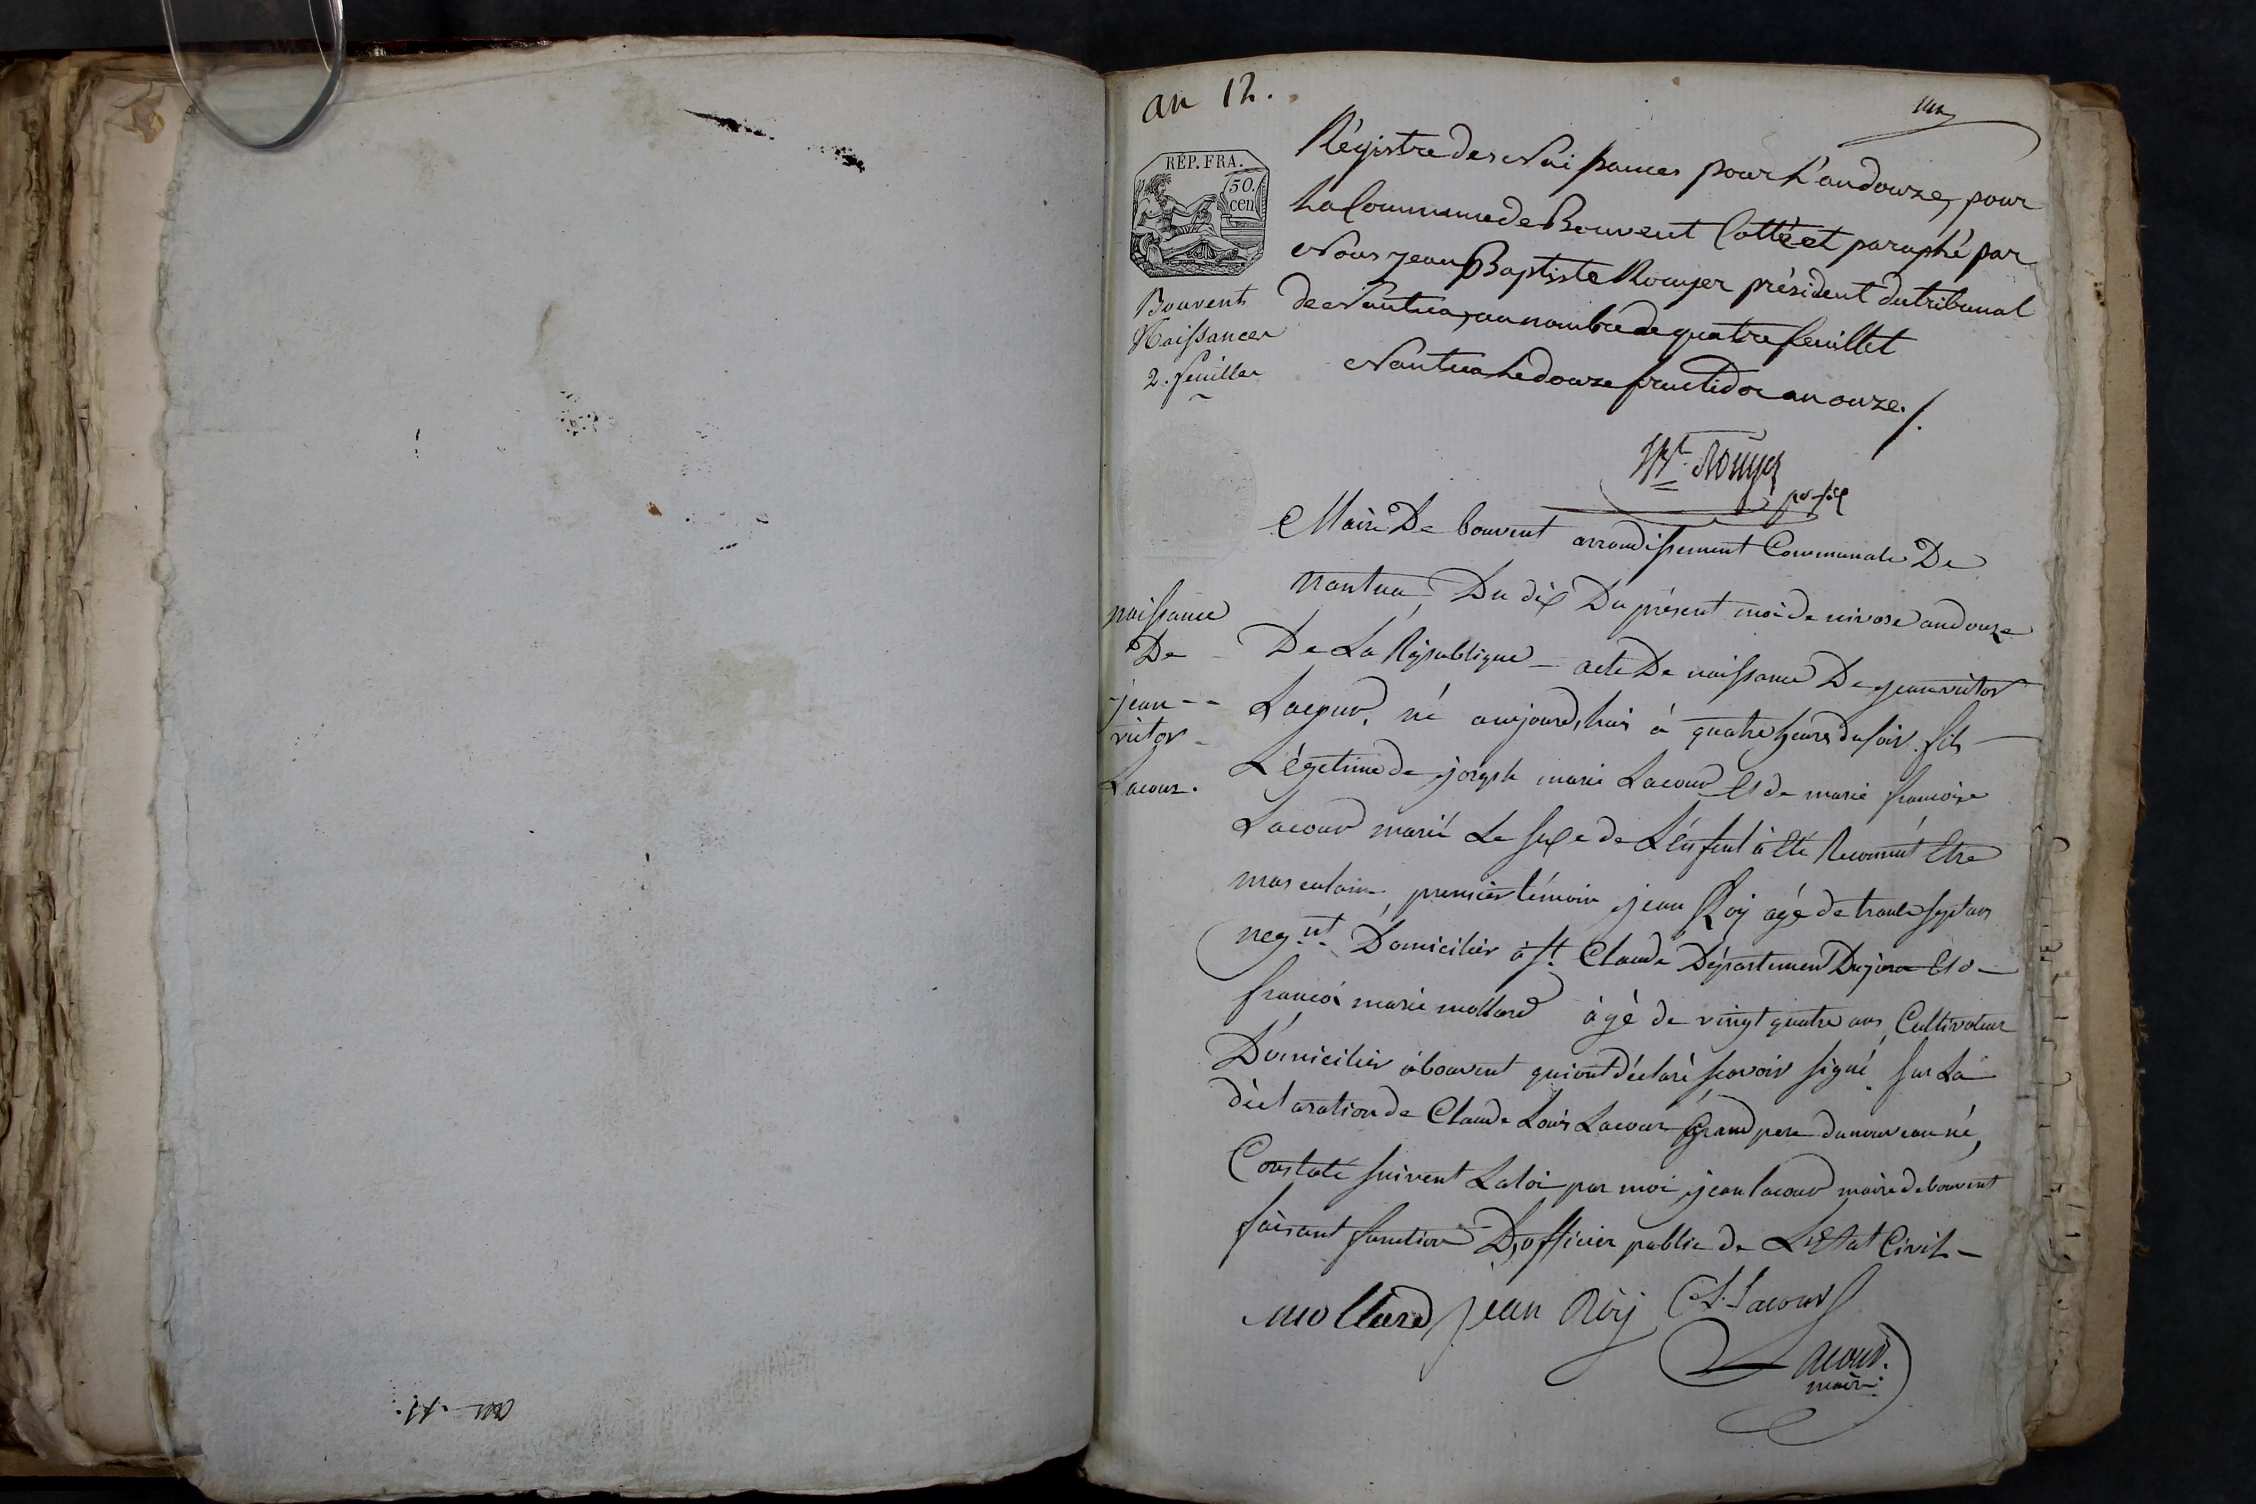 an 12.
un
Régistre des Naissances pour L'an douze, pour
La Commune de Bouvent Cotté et paraphé par
Nous jean Baptiste Rouyer président du tribunal
de Nantua, au nombre de quatre feuillet
Nantua Le douze fructidor an onze. /.
REP. FRA.
50.
cen
Bouvent
Naissances
2. feuilles
Rouyer
Mairi De bouvent arrondissement Communale De
nantua, Du dix Du présent moi de nivose an douze
De La République — acte De naissance De jean victor
Lacour, né aujourd,hui à quatre heures du soir fils —
Légetime de joseph marie Lacour Et de marie francoise
Lacour marié Le sexe de L'énfent à été Reconnut Etre
masculain, premier témoin jean Roy agé de trante sept ans
neg.nt Domicilier à St. Claude Département Du jura Et —
françoi marie mollard àgé de vingt quatre ans, Cultivateur
Domicilier à bouvent qui ont déclaré scavoir signé sur La
déclaration de Claude Louis Lacour Grand pere du nouveau né,
Constaté suivent La loi par moi jean lacour maire de bouvent
faisant fonction D,officier public de L'Etat Civil —
naissance
De —
jean - -
victor -
Lacour.
Mollard jean Roy C. L. Lacour
Lacour.
maire
an 11.